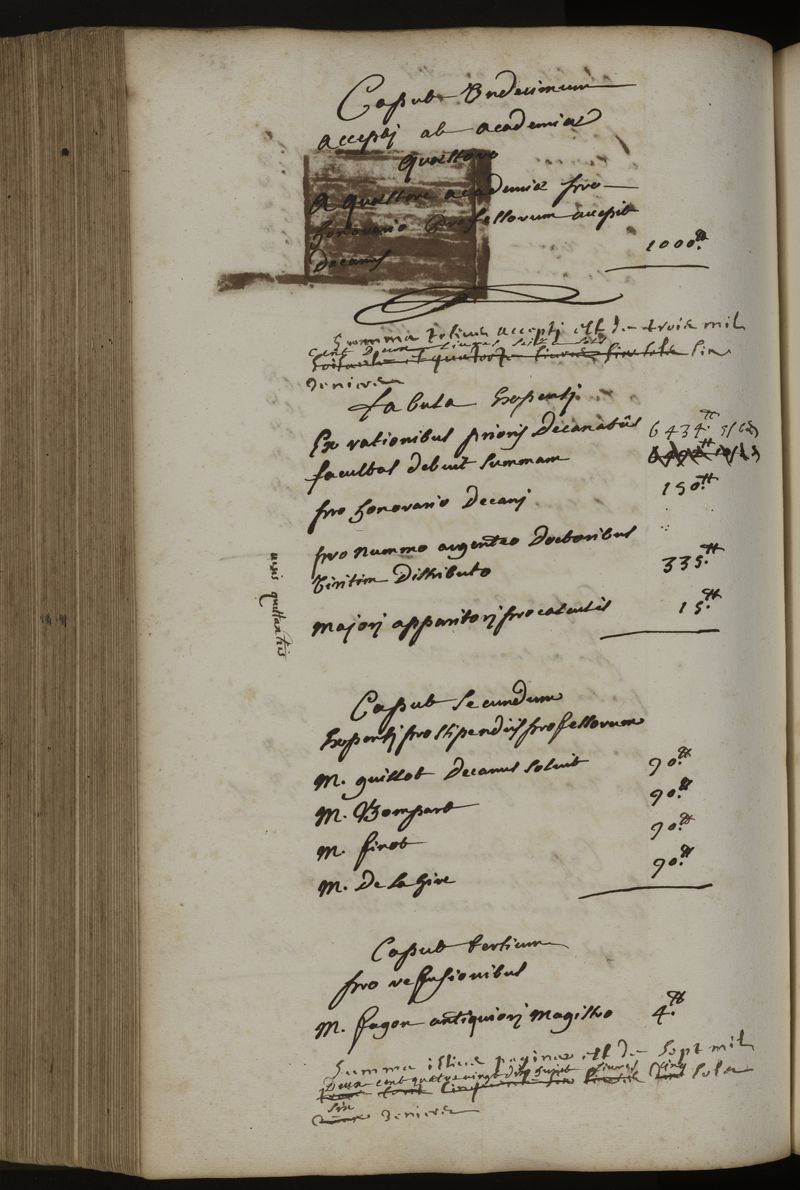 Caput Undecimum
accepti ab academiæ
quæstore
A quæstore academiæ pro
honorario Professorum accepit
decanus 1000.tt
Summa totius accepti est de trois mil
cent deux livres seize sols
livres six sols six
deniers
tabula Expensi
Ex rationibus prioris Decanatûs 6434.tt 5s 6d
facultas debuit summam
pro honorario Decani 150.tt
pro nummo argenteo doctoribus
viritim distributo 335.tt
uxis quittantiis
Majori apparitori pro calculis 15.tt
Caput secundum
Expensi pro stipendiis professorum
M. guillot Decanus solvit 90.tt
M. Bompart 90.tt
M. finot 90.tt
M. De la hire 90.tt
Caput tertium
pro refusionibus
M. fagon antiquiori Magistro 4.tt
Summa istius paginae est de sept mil
Deux cent quatre vingt dix huict livres cinq
sols
six
deniers